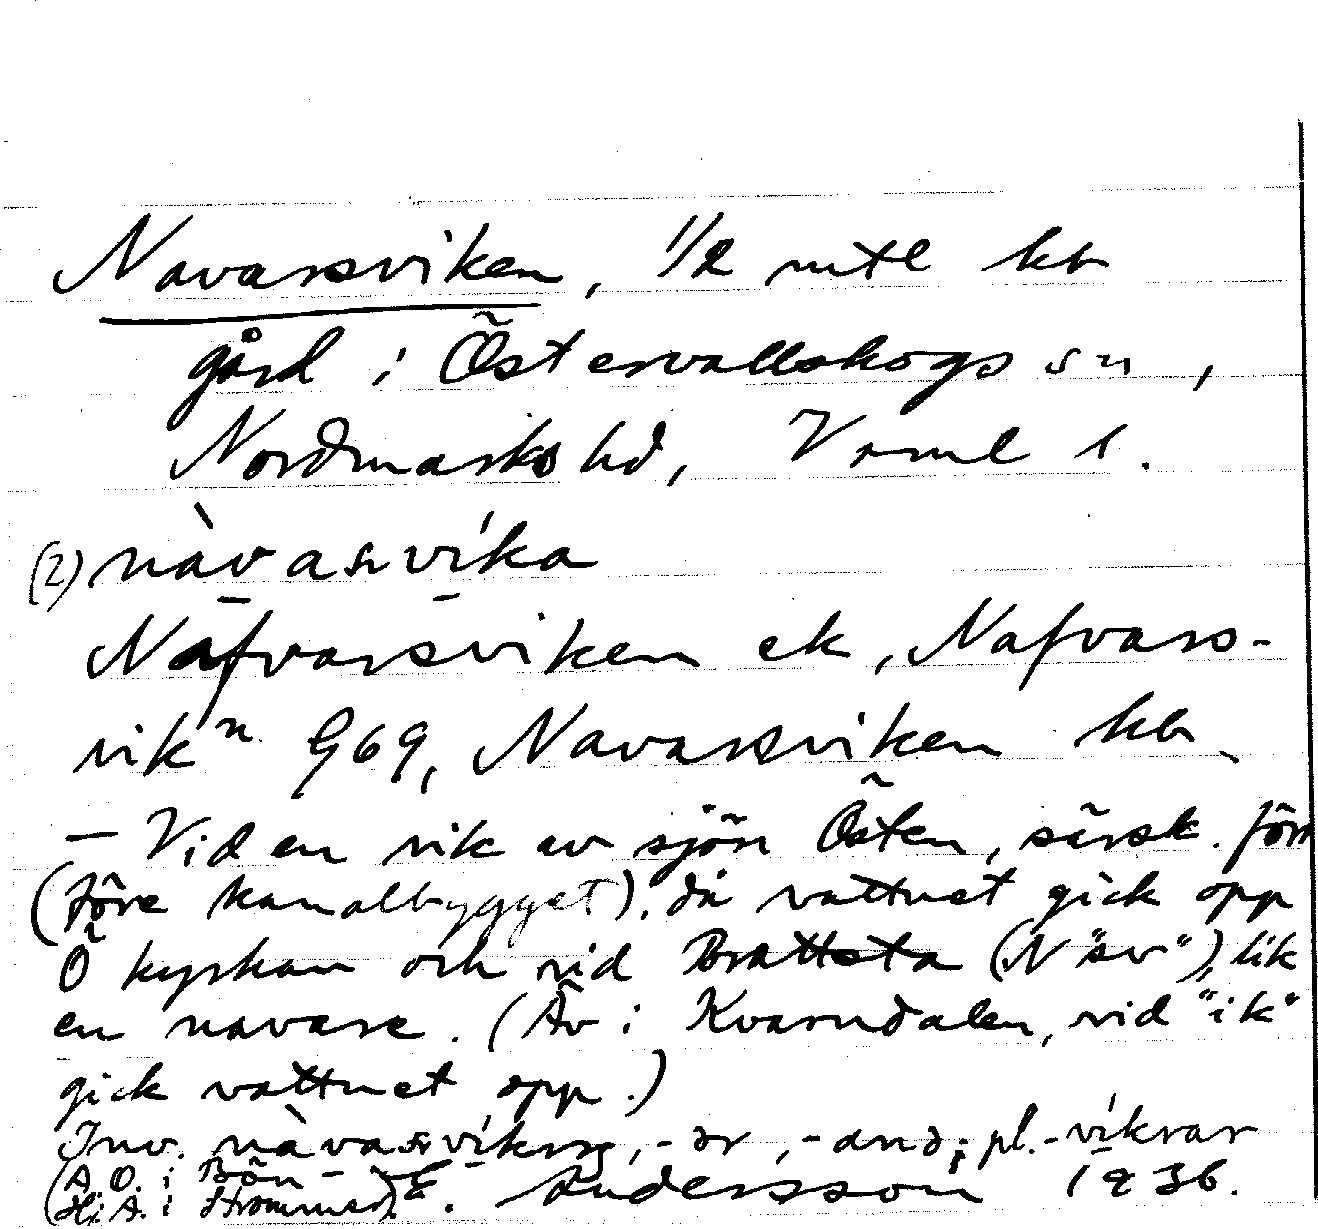 Navarsviken, 1/2 mtl kb
gård i Östervallskogs sn,
Nordmarks hd, Värml l.
(2) nàvasvíka
Nafvarsviken ek, Nafvars-
vikn G69, Navarsviken kb
— Vid en vik av sjön Östen, särsk. förr
(före kanalbygget), då vattnet gick opp
Ö kyrkan och vid Brattsta (N "äv"), lik
en navare. (Äv i Kvarndalen, vid "ik"
gick vattnet opp.)
Inv. nàvasvíking, -ar, -and; pl. -víkrar
(A. O. i Bön – E. Andersson 1936.
(Hj. A. i Strömmer)